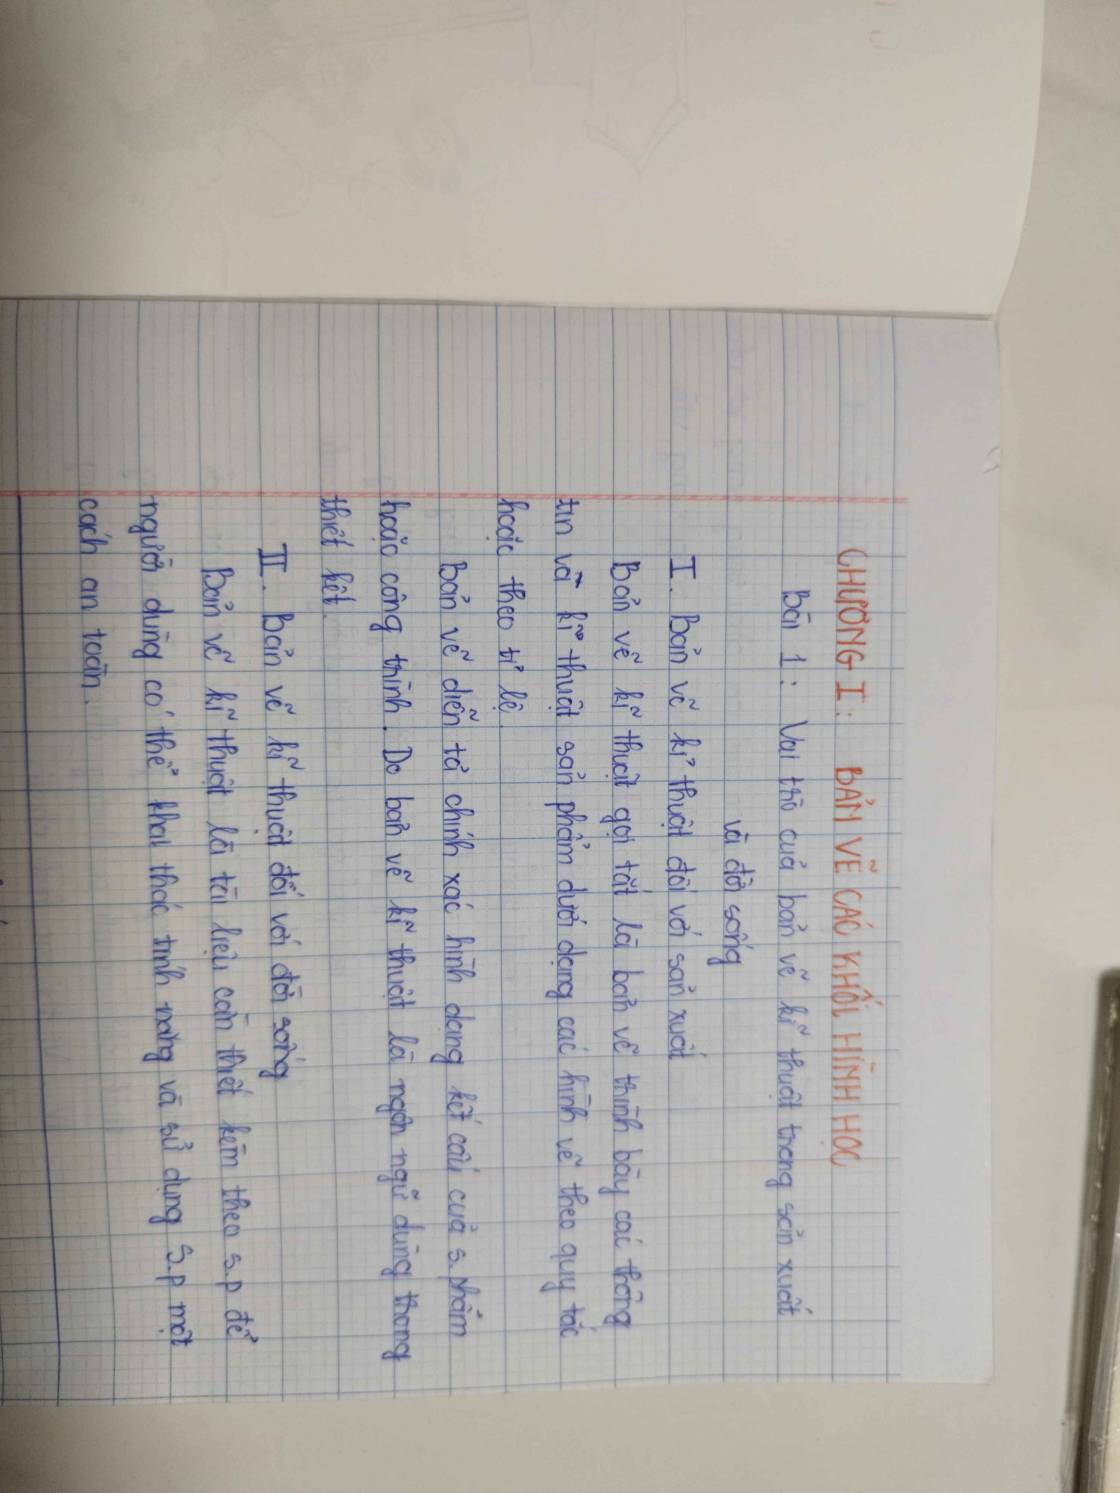 CHƯƠNG I: BẢN VẼ CÁC KHỐI HÌNH HỌC
Bài 1: Vai trò của bản vẽ kĩ thuật trong sản xuất
và đời sống
I. Bản vẽ kĩ thuật đối với sản xuất
Bản vẽ kĩ thuật gọi tắt là bản vẽ trình bày các thông
tin và kĩ thuật sản phẩm dưới dạng các hình vẽ theo quy tắc
hoặc theo tỉ lệ.
Bản vẽ diễn tả chính xác hình dạng kết cấu của s.phẩm
hoặc công trình. Do bản vẽ kĩ thuật là ngôn ngữ dùng trong
thiết kết.
II. Bản vẽ kĩ thuật đối với đời sống
Bản vẽ kĩ thuật là tài liệu cần thiết kèm theo s.p để
người dùng có thể khai thác tính năng và sử dụng s.p một
cách an toàn.